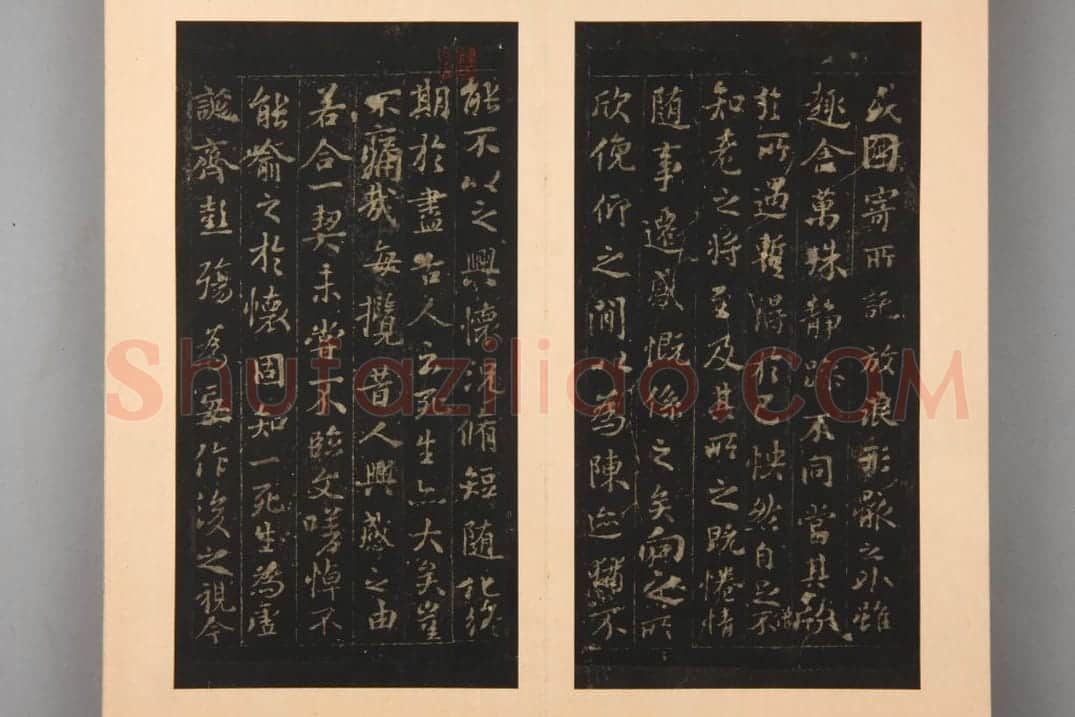 或因寄所託放浪形骸之外雖
趣舍萬殊静躁不同當其欣
於所遇暫得於己怏然自足不
知老之将至及其所之既惓情
随事遷感慨係之矣向之所
欣俛仰之閒以為陳迹猶不
能不以之興懷況脩短随化終
期於盡古人云死生亦大矣豈
不痛哉每攬昔人興感之由
若合一契未嘗不臨文嗟悼不
能喻之於懷固知一死生為虛
誕齊彭殤為妄作後之視今
Shufaziliao.COM